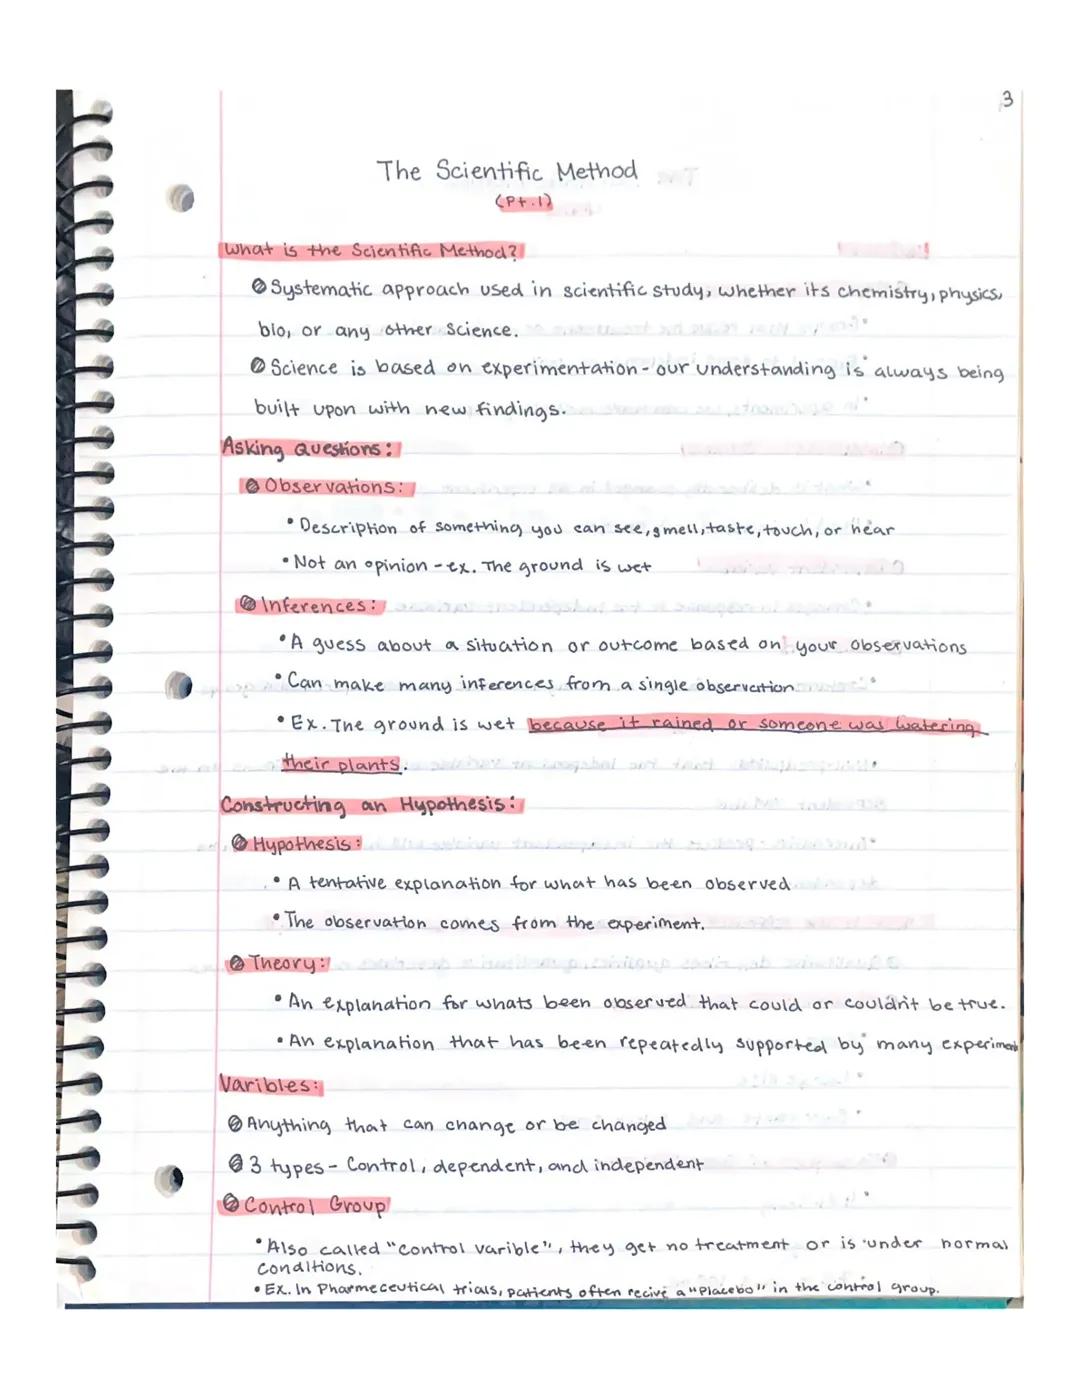 3
The Scientific Method
(Pt.1)
What is the Scientific Method?
Systematic approach used in scientific study, whether its chemistry, physics,
bio, or any other science.
Science is based on experimentation - our understanding is always being
built upon with new findings.
Asking Questions:
Observations:
• Description of something you can see, smell, taste, touch, or hear
• Not an opinion - ex. The ground is wet
Inferences:
• A guess about a situation or outcome based on your observations
• Can make many inferences from a single observation
• Ex. The ground is wet because it rained or someone was watering
their plants.
Constructing an Hypothesis:
Hypothesis:
• A tentative explanation for what has been observed
• The observation comes from the experiment.
Theory:
• An explanation for whats been observed that could or couldn't be true.
• An explanation that has been repeatedly supported by many experiment
Varibles:
Anything that can change or be changed
3 types - Control, dependent, and independent
Control Group
• Also called "control varible", they get no treatment or is under normal
conditions.
• Ex. In Pharmeceutical trials, patients often recive a "placebo" in the control group.